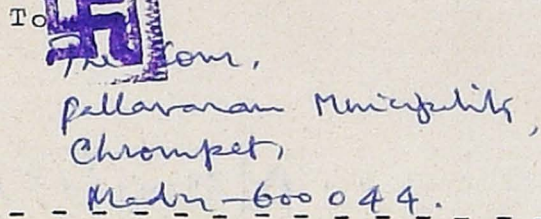 To
The Com,
Pallavaram Municipality,
Chrompet,
Madras-600 044.